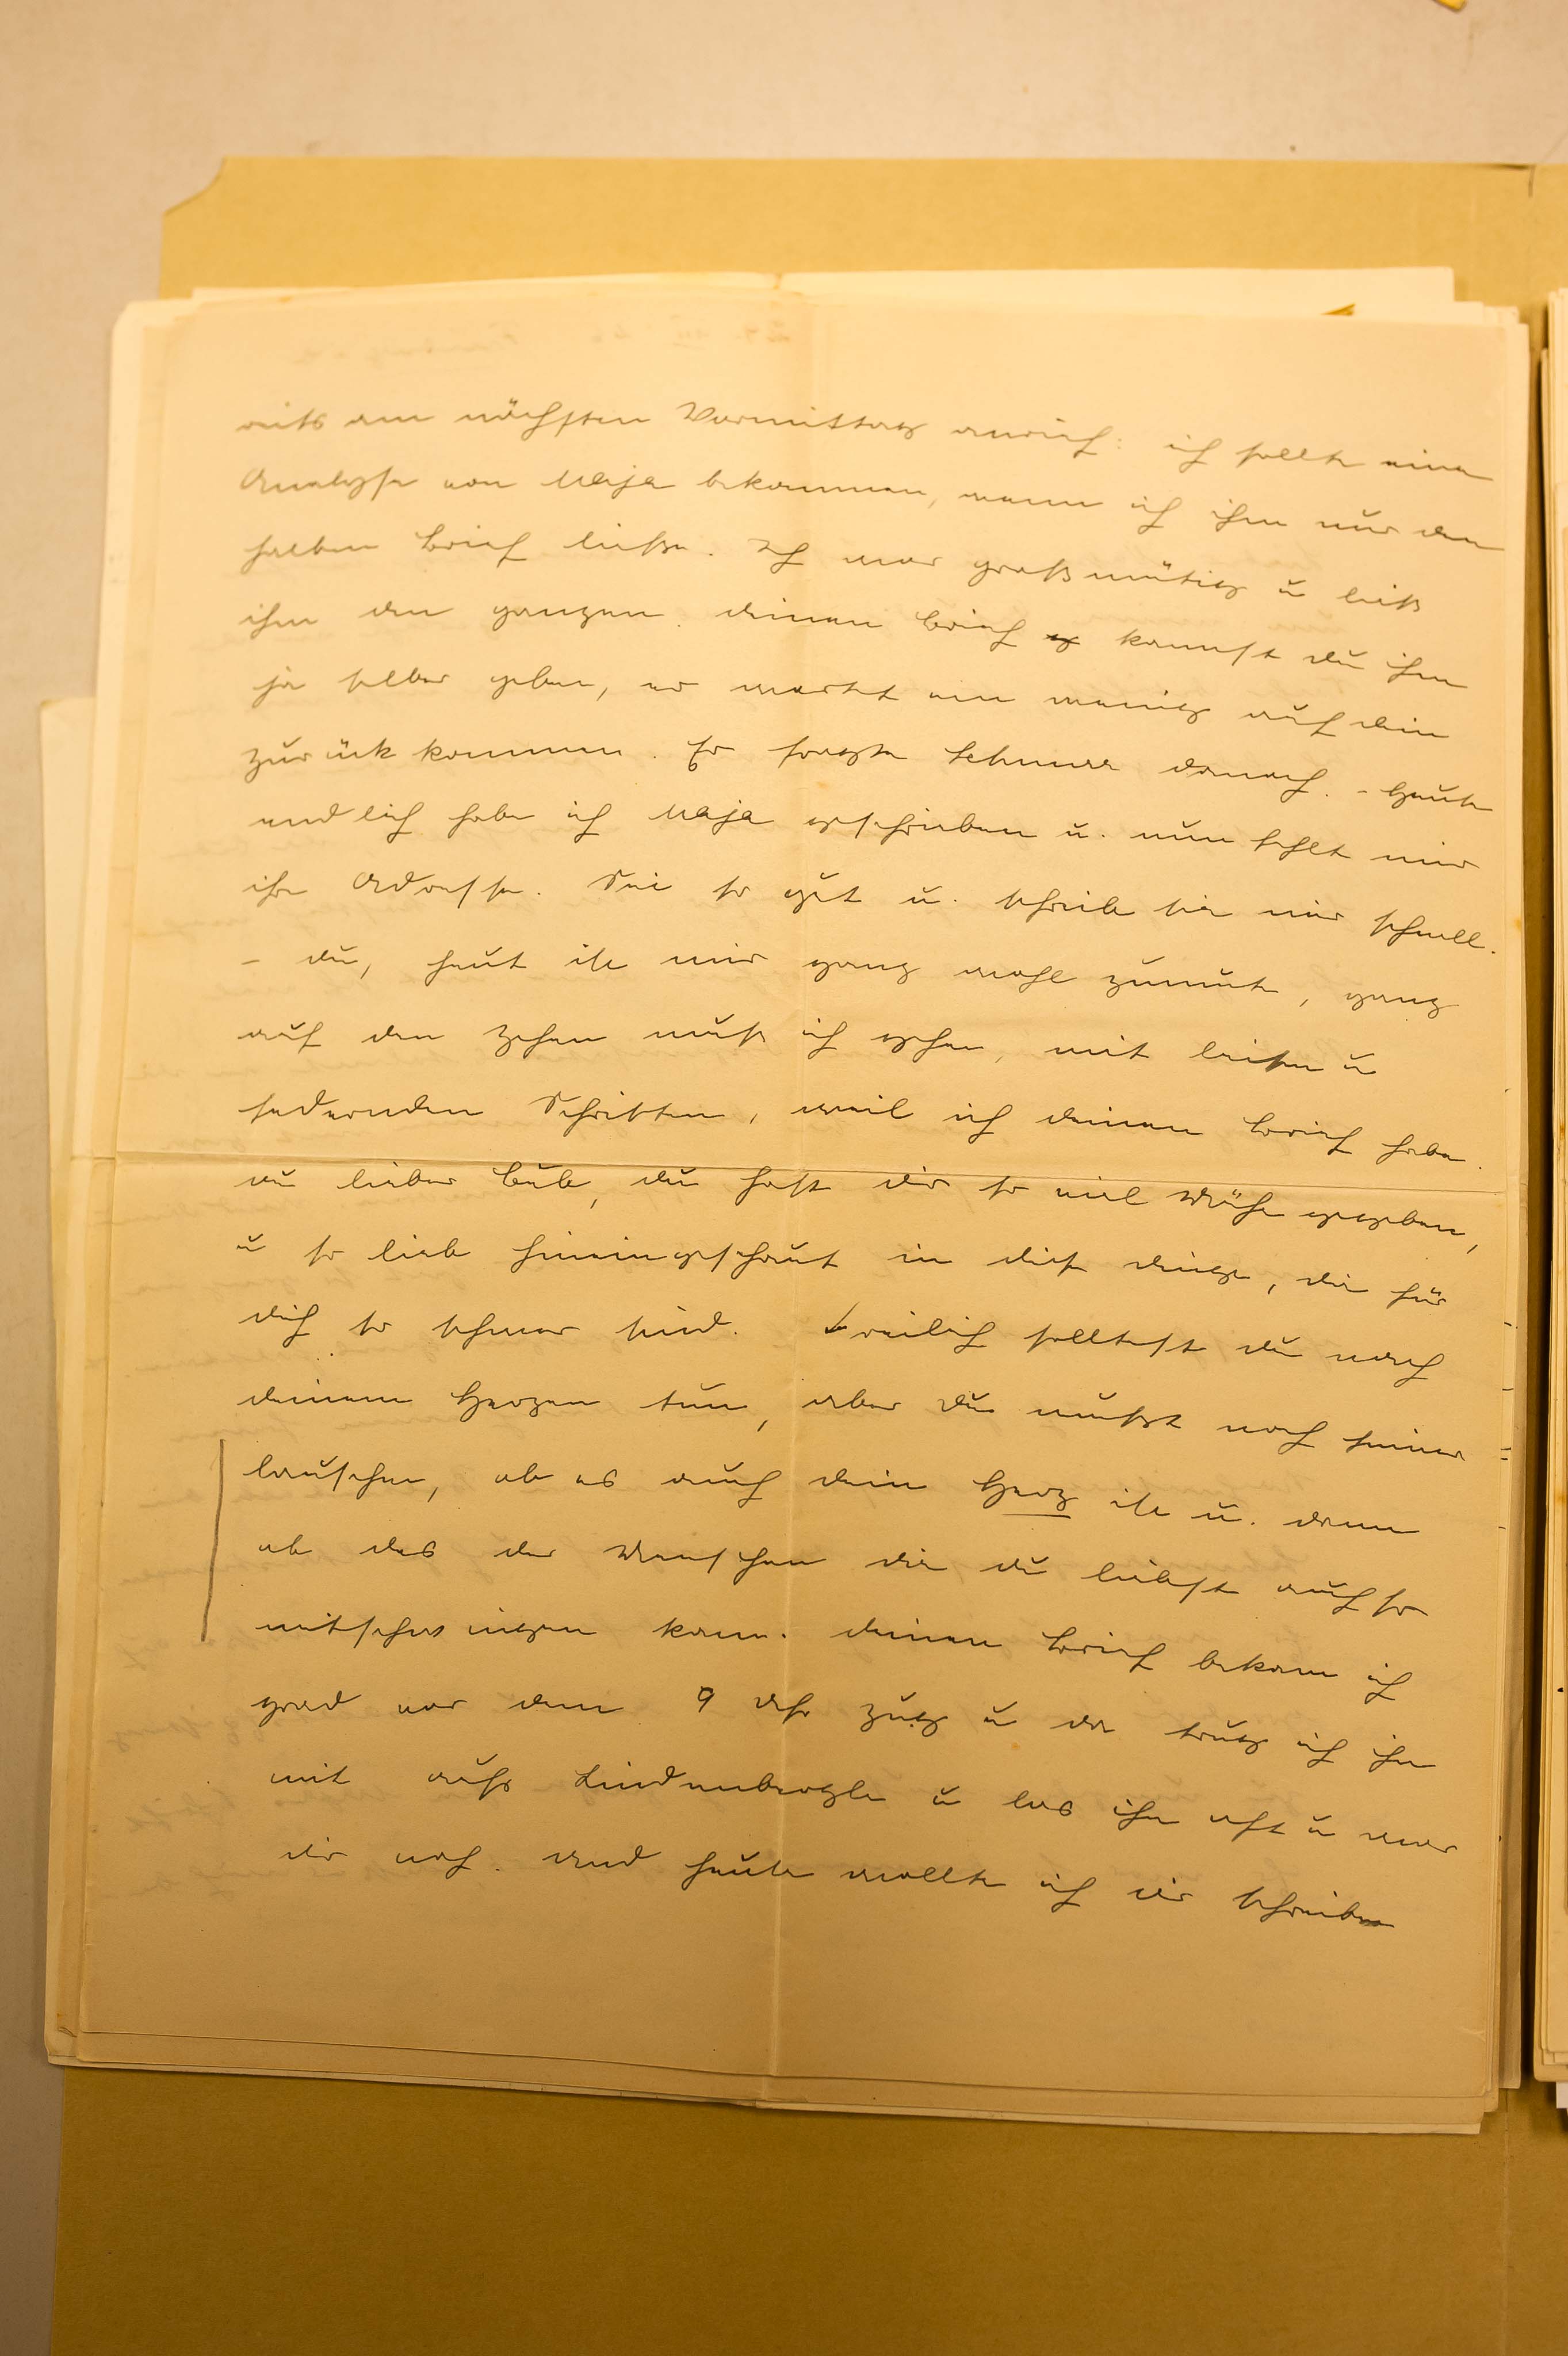 eits am nächsten Vormittag anrief: ich sollte eine
Analyse von Maja bekommen, wenn ich ihm nur den
halben Brief ließe. Ich war großmütig u ließ
ihm den ganzen. Deinen Brief kannst du ihm
ja selber geben, er wartet ein wenig auf dein
zurückkommen. Er fragte schwer danach. - Heute
endlich habe ich Maja geschrieben u. nun fehlt mir
ihre Adresse. Sei so gut u. schreibe sie mir schnell.
- du, heut ist mir ganz wohl zumute, ganz
auf den Zehen muß ich gehen, mit leisen u
federnden Schritten, weil ich deinen Brief habe.
du lieber Bub, du hast dir so viel Mühe gegeben,
u so lieb hineingeschaut in diese Dinge, die für
dich so schwer sind. Freilich solltest du nach
deinem Herzen tun, aber du mußt noch feiner
lauschen, ob es auch dein Herz ist u. dann
ob das der Menschen die du liebst auch so
mitschwingen kann. Deinen Brief bekam ich
grad vor dem 9 Uhr Zug u da trug ich ihn
mit aufs Lindenbergle u las ihn oft u war
dir nah. Und heute wollte ich dir schreiben